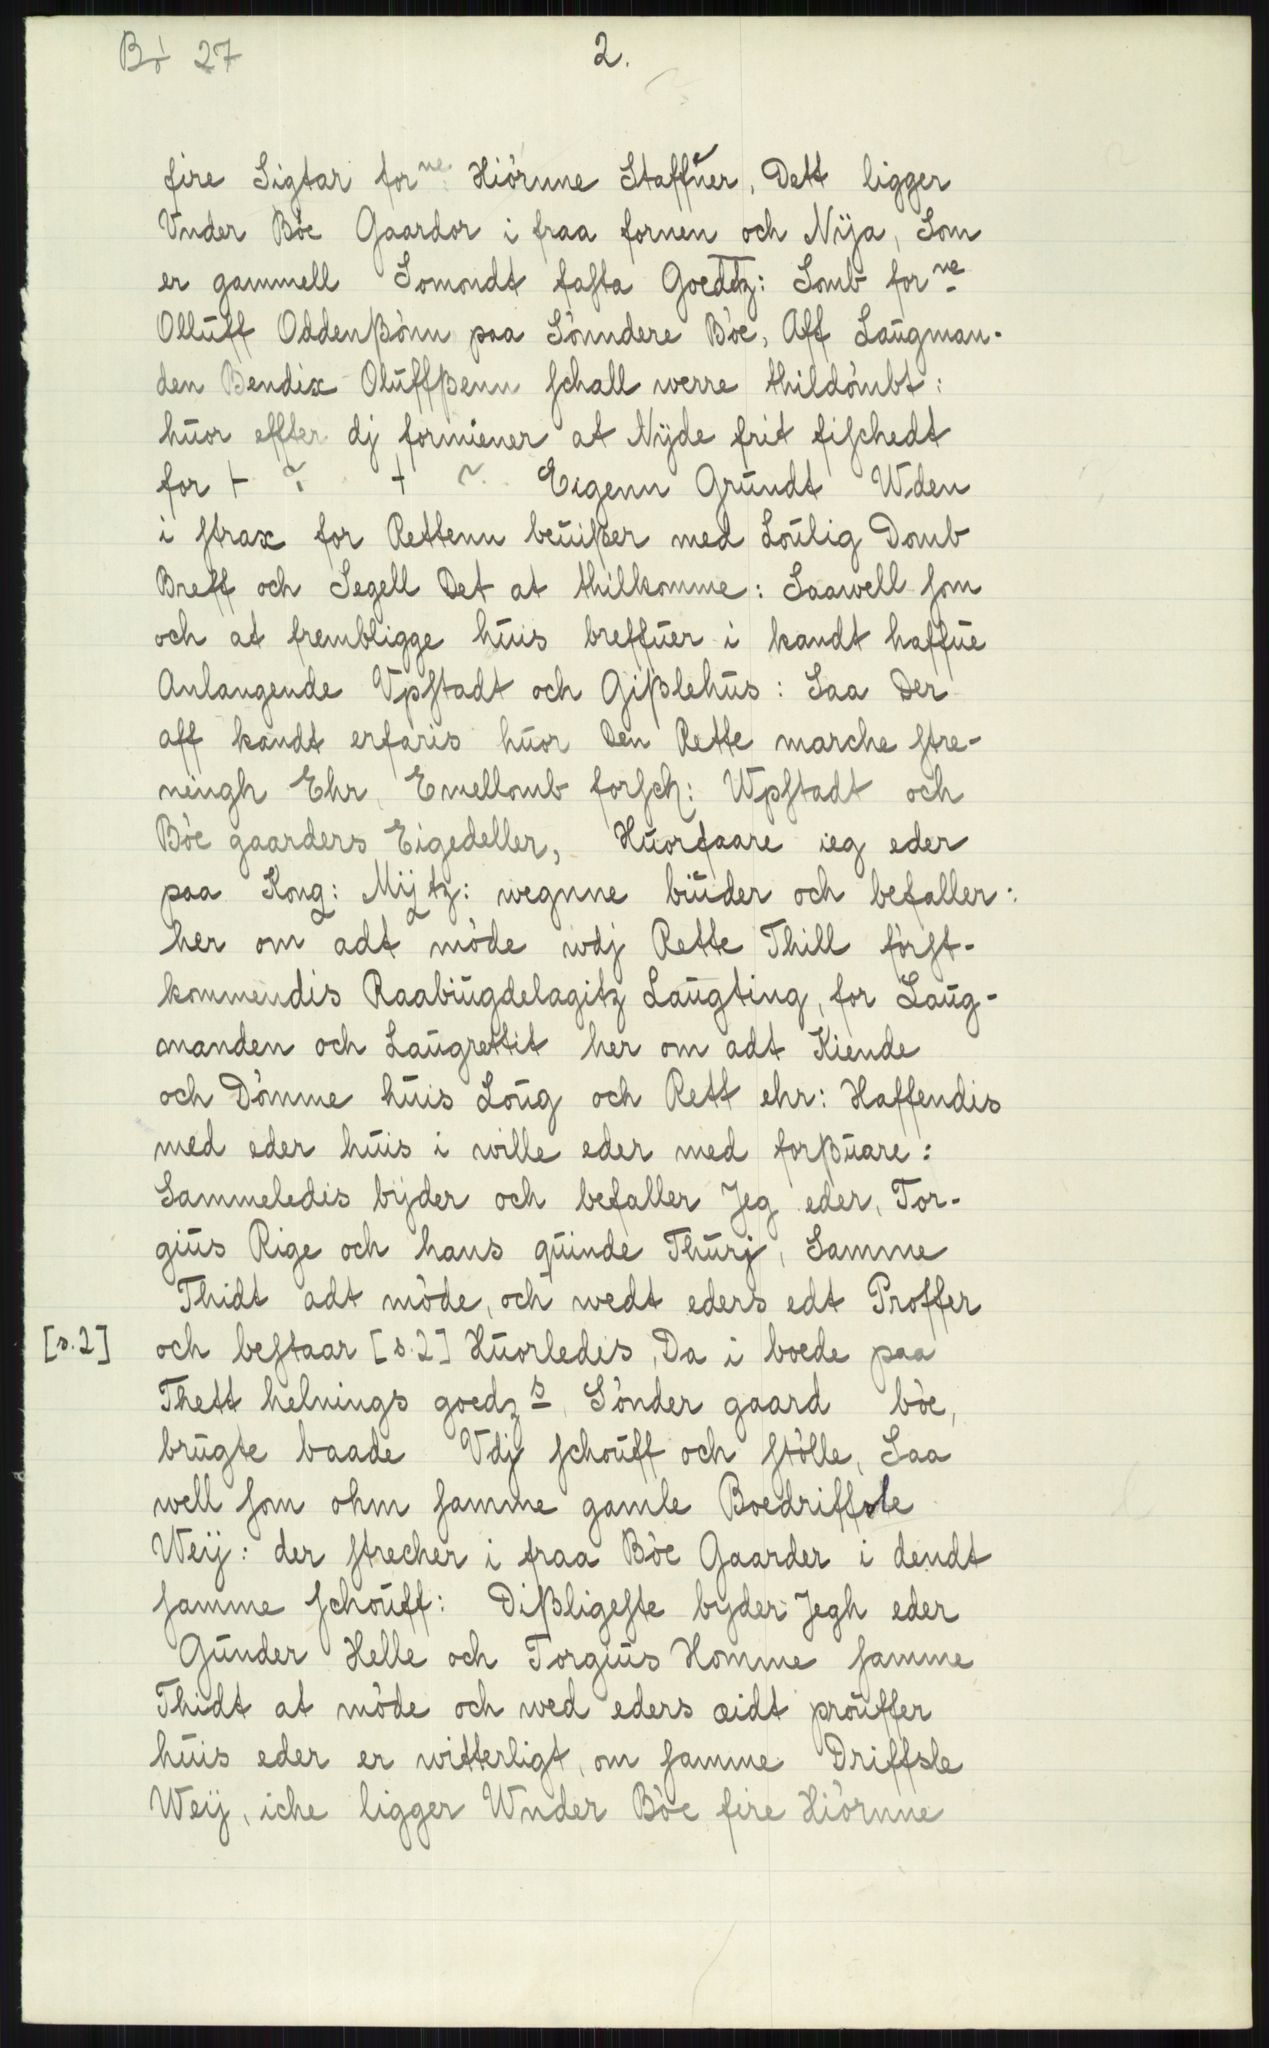 Bö 27
2.
fire Sigtar for ne Hiörnne Staffuer, Dett ligger
Vnder Böe Gaardor i fraa fornen och Nija, Som
er gammell Somondt fasta Goedtz: Somb for ne
Olluff Oddenßönn paa Sönndere Böe, Aff Laugman-
den Bendix Oluffßenn schall werre thildömbt:
huor effter dj formiener at Nijde frit fischedt
for + ~ + ~ Eigenn Grundt Wden
i strax for Rettenn beuißer med Loulig Domb
Breff och Segell Det at thilkomme: Saawell som
och at frembligge huis breffuer i kandt haffue
Anlangende Vpstadt och Gißlehus: Saa Der
aff kandt erfaris huor Den Rette marche stre-
ningh Ehr, Emellomb forsch: Wpstadt och
Böe gaarders Eigedeller, Huorfaare ieg eder
paa Kong: Mijtz: wegnne biuder och befaller:
her om adt möde wdj Rette Thill först-
kommendis Raabiugdelagitz Laugting, for Laug-
manden och Laugrettit her om adt Kiende
och Dömme huis Loug och Rett ehr: Haffendis
med eder huis i wille eder med forßuare:
Sammeledis bijder och befaller Jeg eder, Tor-
gius Rige och hans quinde Thurj, Samme
Thidt adt möde, och wedt eders edt Proffer
[s.2] och bestaar [s.2] Huorledis, Da i boede paa
Thett helnings goedz s, Sönder gaard böe,
brugte baade Vdj schouff och stölle, Saa
well som ohm samme gamle Boedriffsle
Weij: der strecher i fraa Böe Gaarder i dendt
samme schouff: Dißligeste byder Jegh eder
Gunder Helle och Torgius Homme samme
Thidt at möde och wed eders æidt prouffer
huis eder er witterligt, om samme Driffsle
Weij, iche ligger Wnder Böe fire Hiörnne